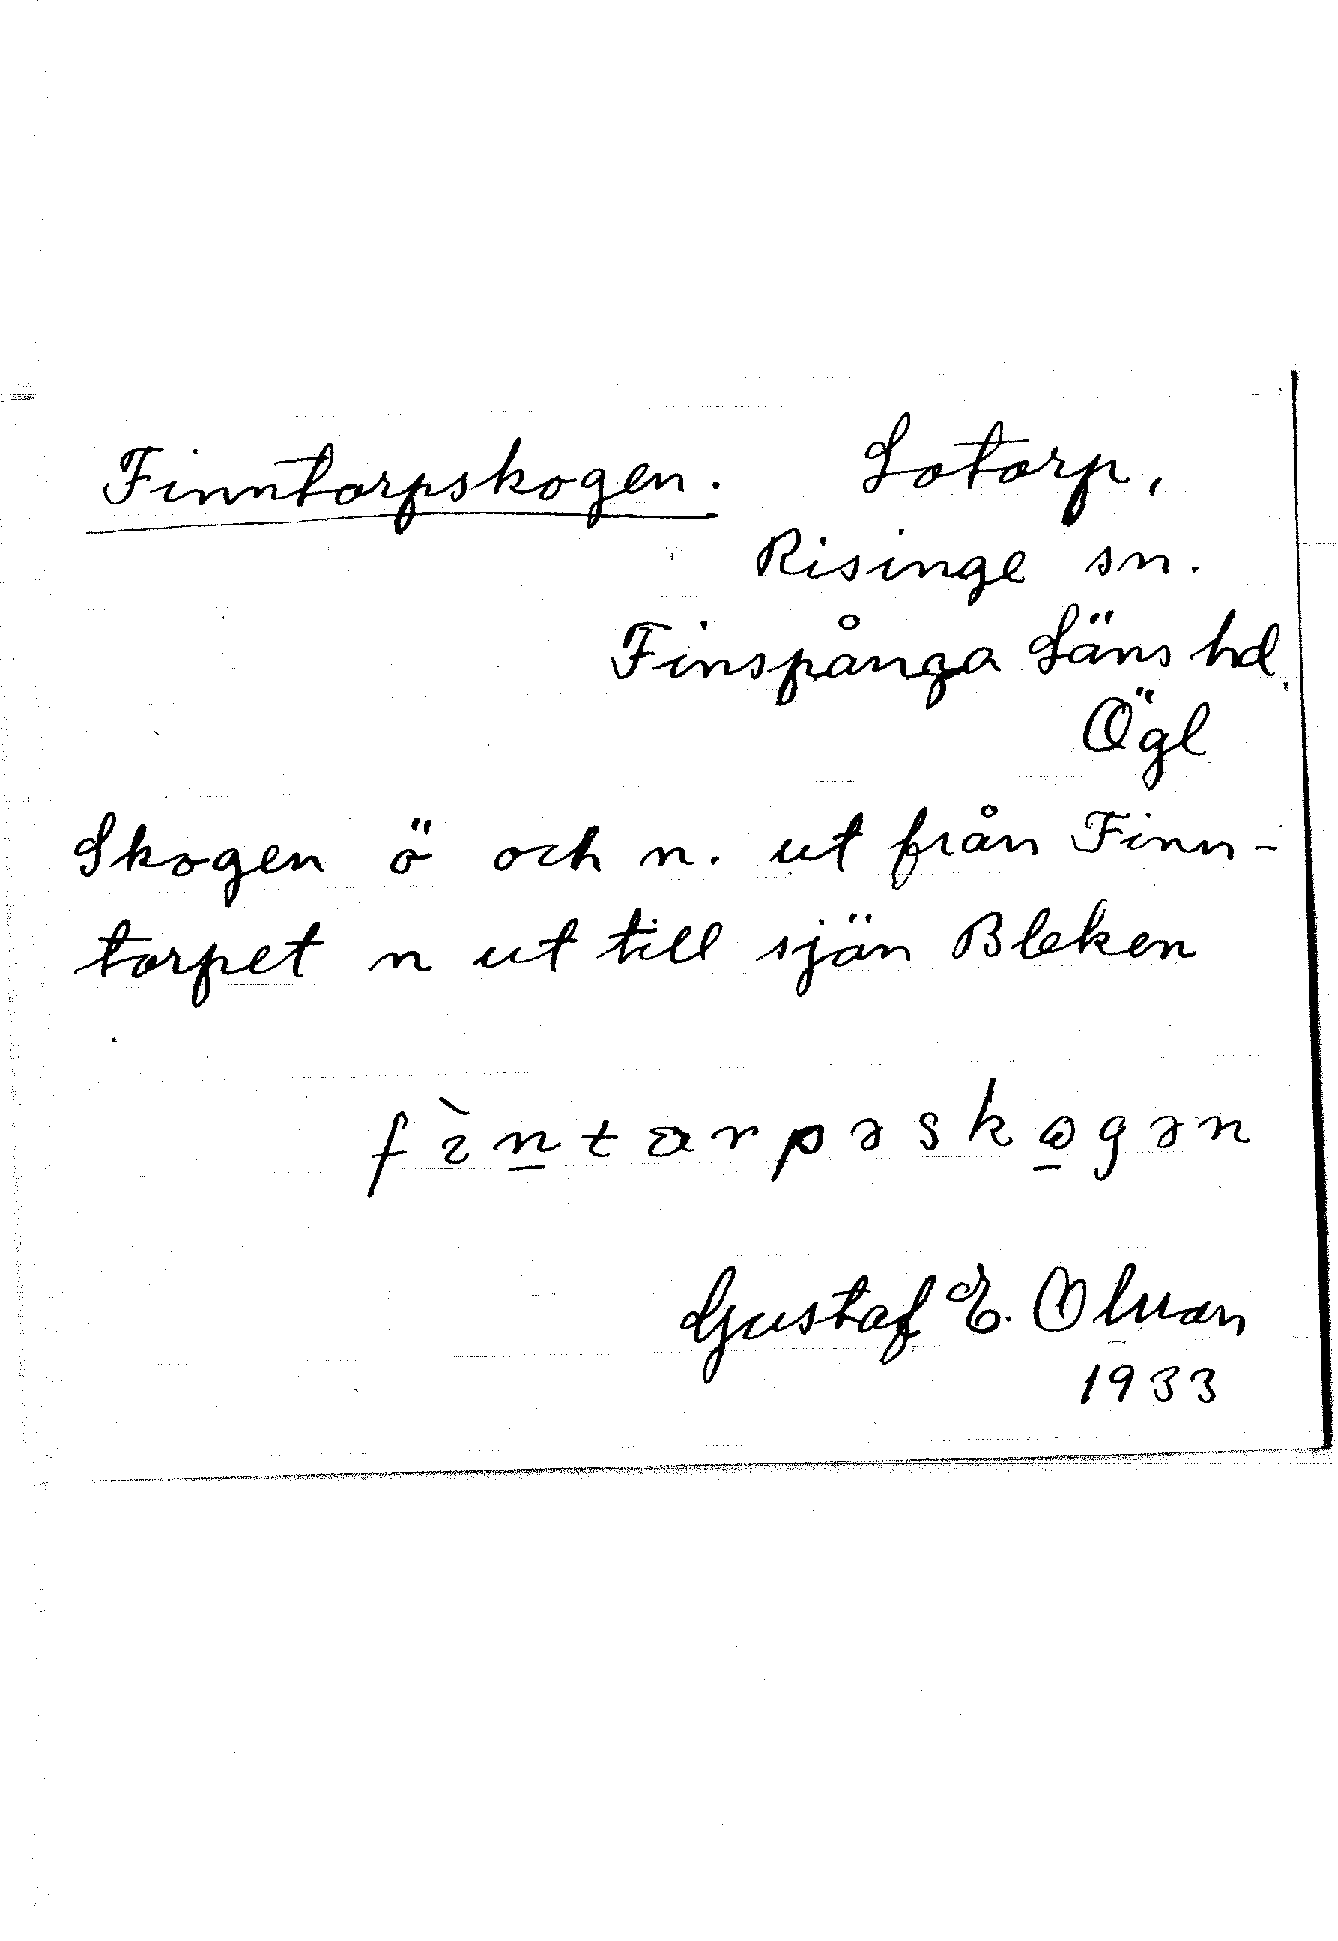 Finntorpskogen. Lotorp,
Risinge sn.
Finspånga Läns hd.
Ögl
Skogen ö och n. ut från Finn-
torpet n ut till sjön Bleken
Gustaf E. Olsson
1933